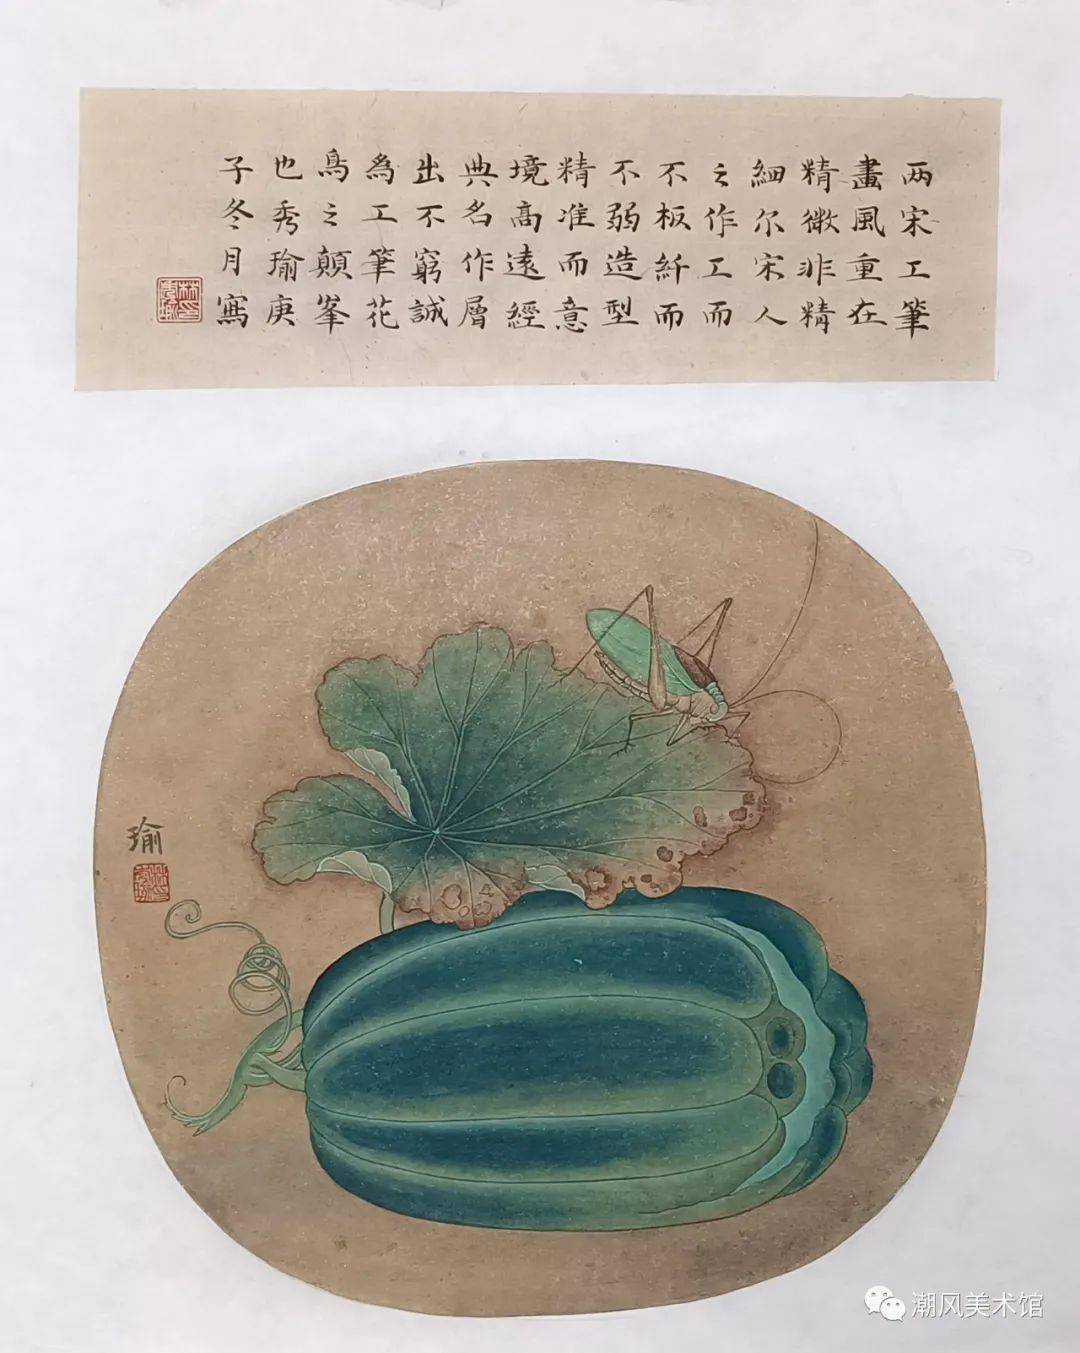 两宋工筆
畫風重在
精微非精
細尔宋人
之作工而
不板纤而
不弱造型
精准而意
境高遠經
典名作層
出不窮誠
為工筆花
鳥之顛峯
也秀瑜庚
子冬月寫
瑜
潮风美术馆